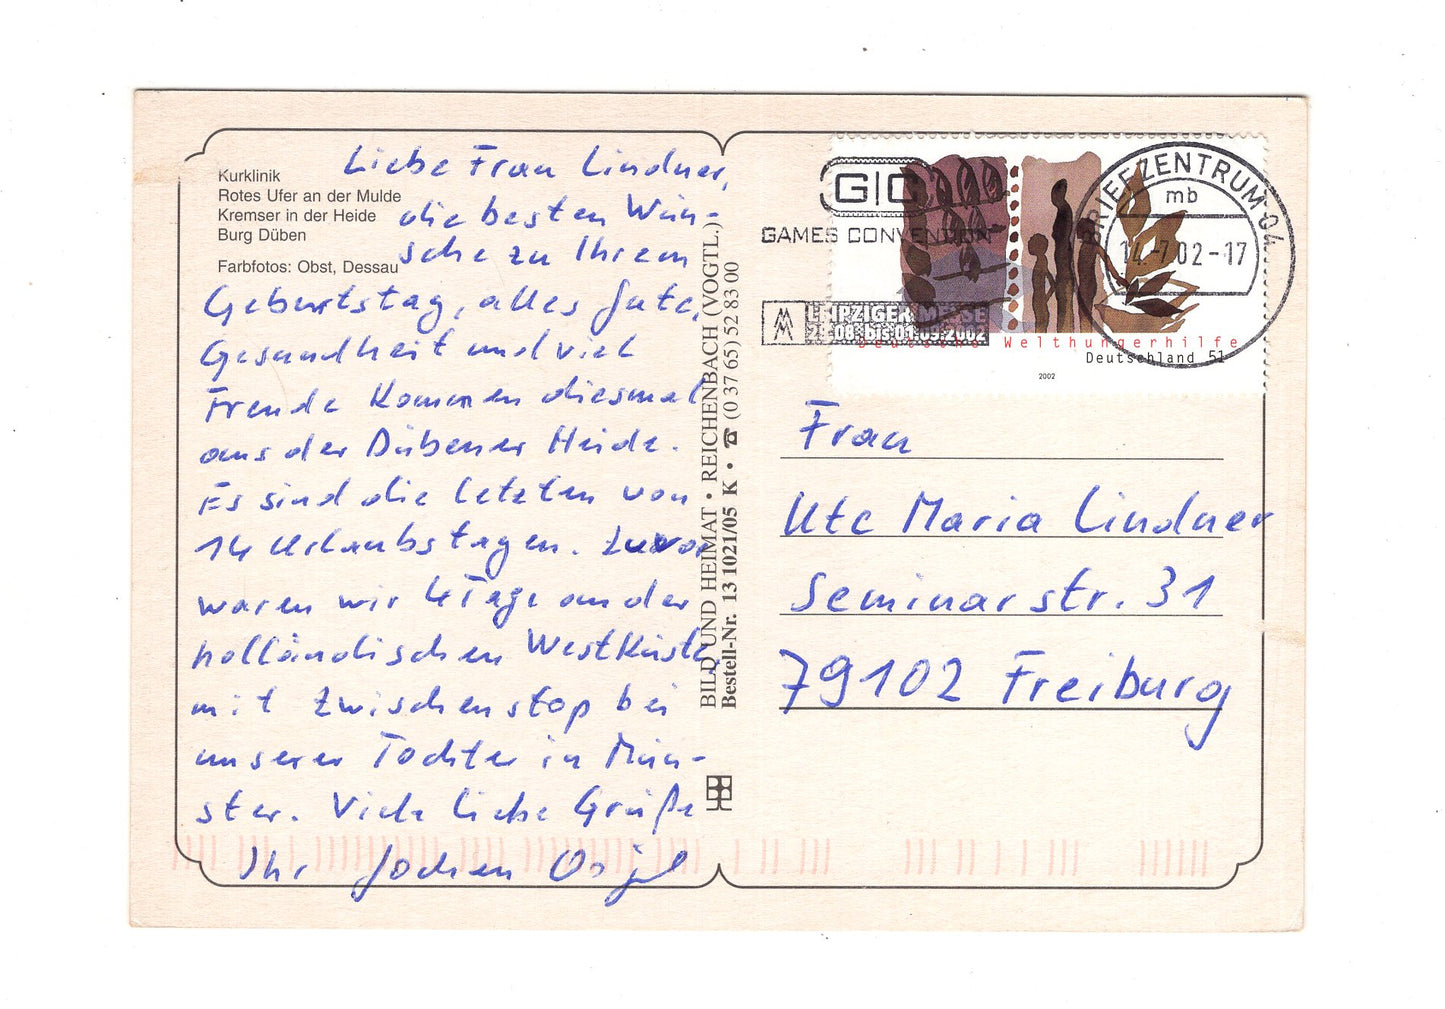 Kurklinik
Rotes Ufer an der Mulde
Kremser in der Heide
Burg Düben
Farbfotos: Obst, Dessau
Liebe Frau Lindner,
die besten Wün-
sche zu Ihrem
Geburtstag, alles Gute,
Gesundheit und viel
Freude kommen diesmal
aus der Dübener Heide.
Es sind die letzten von
14 Urlaubstagen. Zuvor
waren wir 4 Tage an der
holländischen Westküste,
mit Zwischenstop bei
unserer Tochter in Mün-
ster. Viele liebe Grüße
Ihr Jochen
BILD UND HEIMAT • REICHENBACH (VOGTL.)
Bestell-Nr. 13 1021/05 K • ☎ (0 37 65) 52 83 00
GC
GAMES CONVENTION
LEIPZIGER MESSE
29.08. bis 01.09.2002
BRIEFZENTRUM 04
mb
14.-7.02-17
Deutsche Welthungerhilfe
Deutschland 51
2002
Frau
Ute Maria Lindner
Seminarstr. 31
79102 Freiburg